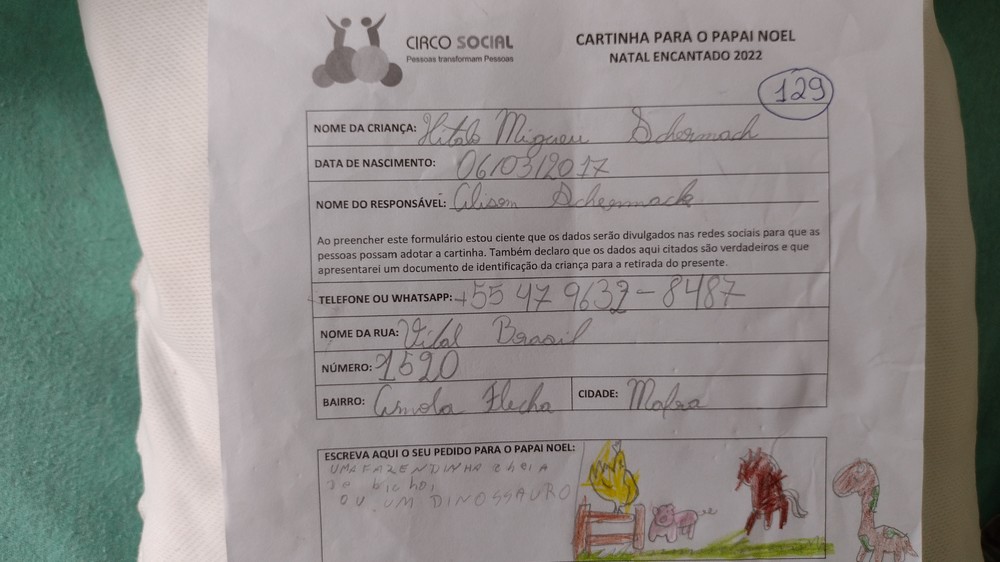 CIRCO SOCIAL
Pessoas transformam Pessoas
CARTINHA PARA O PAPAI NOEL
NATAL ENCANTADO 2022
129
NOME DA CRIANÇA: Hitalo Migueu Schermach
DATA DE NASCIMENTO: 06/03/2017
NOME DO RESPONSÁVEL: Alison Schermack
Ao preencher este formulário estou ciente que os dados serão divulgados nas redes sociais para que as
pessoas possam adotar a cartinha. Também declaro que os dados aqui citados são verdadeiros e que
apresentarei um documento de identificação da criança para a retirada do presente.
TELEFONE OU WHATSAPP: +55 47 9632-8487
NOME DA RUA: Vital Brasil
NÚMERO: 1520
BAIRRO: Flecha CIDADE: Mafra
ESCREVA AQUI O SEU PEDIDO PARA O PAPAI NOEL:
UMA FAZENDINHA cheia
de bichoi
OU UM DINOSSAURO